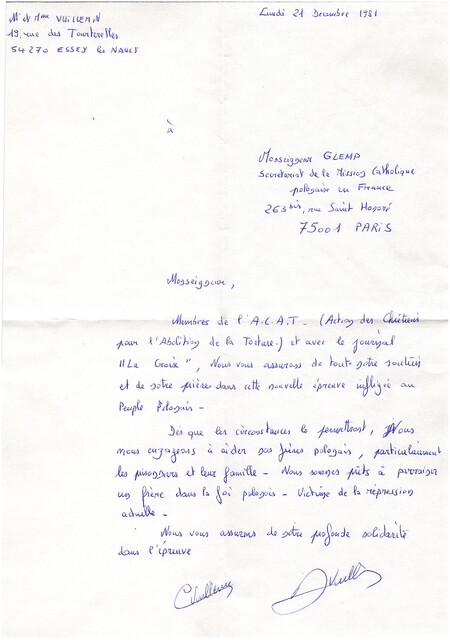 Mr et Mme VUILLEMIN
19, rue des Tourterelles
54270 ESSEY les NANCY
Lundi 21 Décembre 1981
à
Monseigneur GLEMP
Secrétariat de la Mission Catholique
polonaise en France
263 bis, rue Saint Honoré
75001 PARIS
Monseigneur,
Membres de l'A.C.A.T - (Action des Chrétiens
pour l'Abolition de la Torture) et avec le journal
"La Croix", Nous vous assurons de tout notre soutien
et de notre prière dans cette nouvelle épreuve infligée au
Peuple Polonais -
Dès que les circonstances le permettront, Nous
nous engageons à aider nos frères polonais, particulièrement
les prisonniers et leur famille - Nous sommes prêts à parrainer
un frère dans la foi polonais - Victime de la répression
actuelle -
Nous vous assurons de notre profonde solidarité
dans l'épreuve